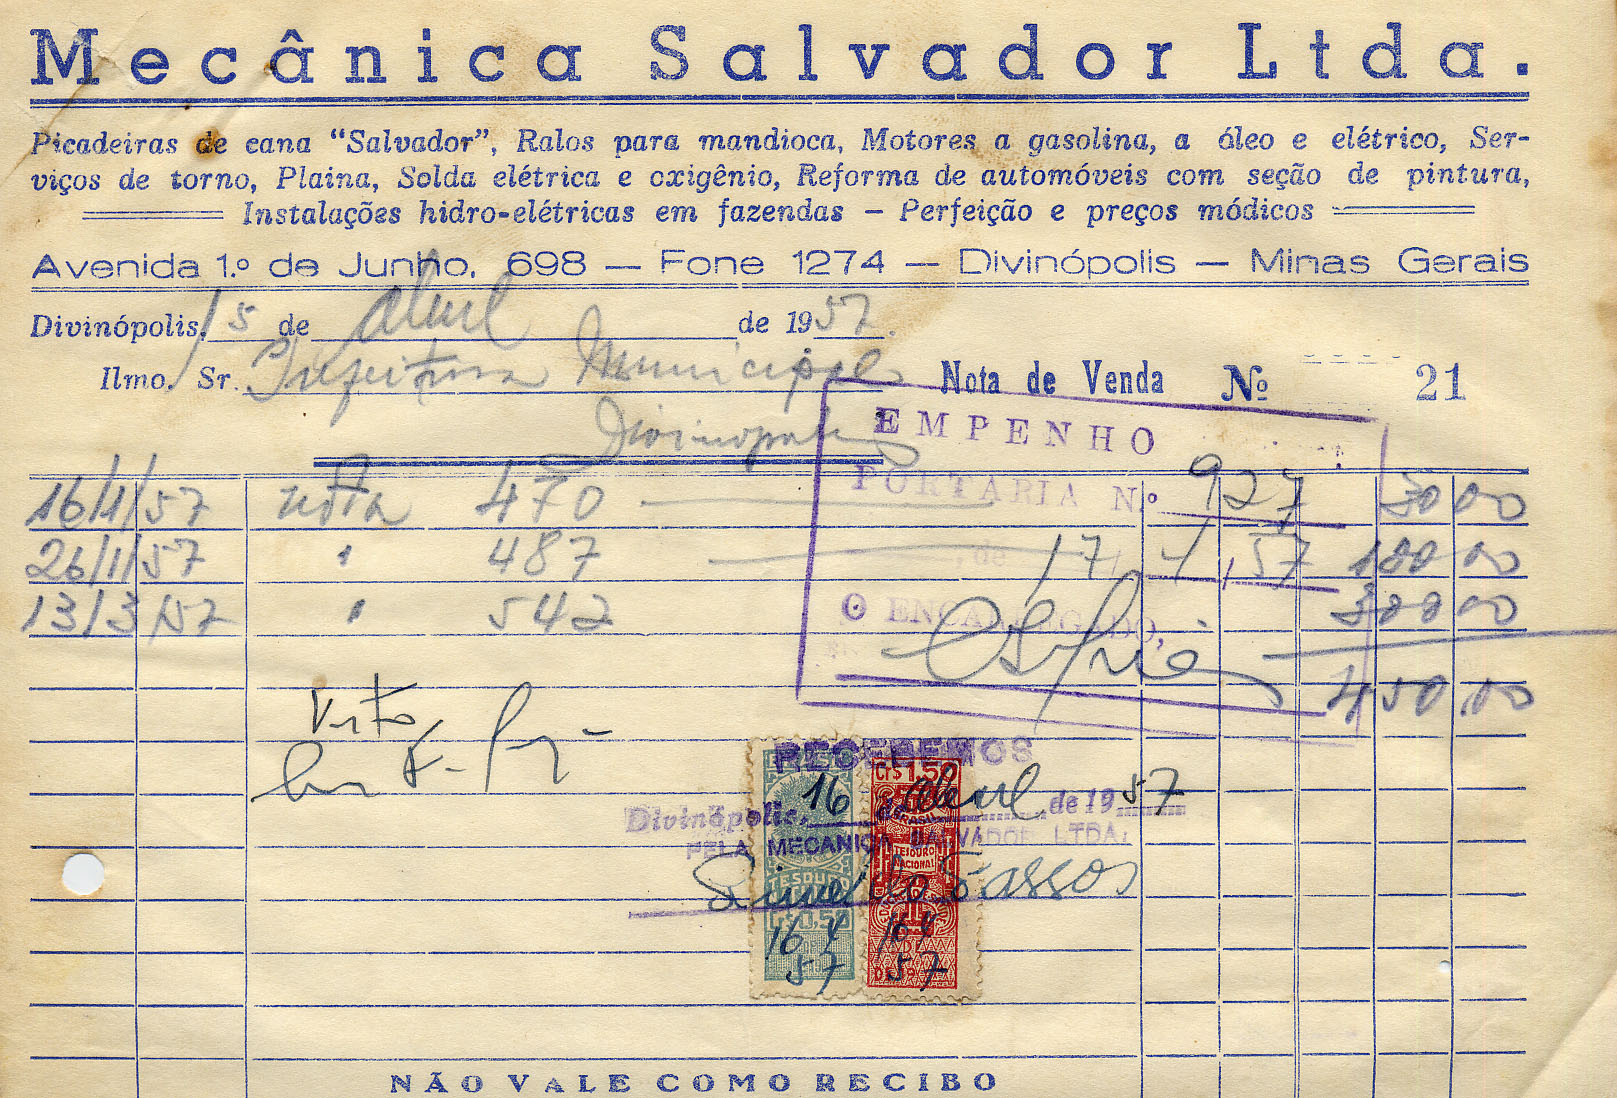 Mecânica Salvador Ltda.
Picadeiras de cana "Salvador", Ralos para mandioca, Motores a gasolina, a óleo e elétrico, Ser-
viços de torno, Plaina, Solda elétrica e oxigênio, Reforma de automóveis com seção de pintura,
Instalações hidro-elétricas em fazendas — Perfeição e preços módicos
Avenida 1.º de Junho, 698 — Fone 1274 — Divinópolis — Minas Gerais
Divinópolis, 15 de Abril de 1957.
Ilmo. Sr. Prefeitura Municipal
Nota de Venda Nº 21
Divinópolis
EMPENHO
PORTARIA N.º 927
16/1/57 nota 470 50 00
26/1/57 " 487 100 00
, de 17 4, 57
13/3/57 " 542 300 00
O ENCARREGADO,
450.00
Visto
RECEBEMOS
Cr$ 1,50
Divinópolis, 16 de Abril de 1957
BRASIL
PELA MECANICA SALVADOR LTDA.
TESOURO
NACIONAL
Passos
Cr$ 0,50
16 4
57
16 4
57
NÃO VALE COMO RECIBO